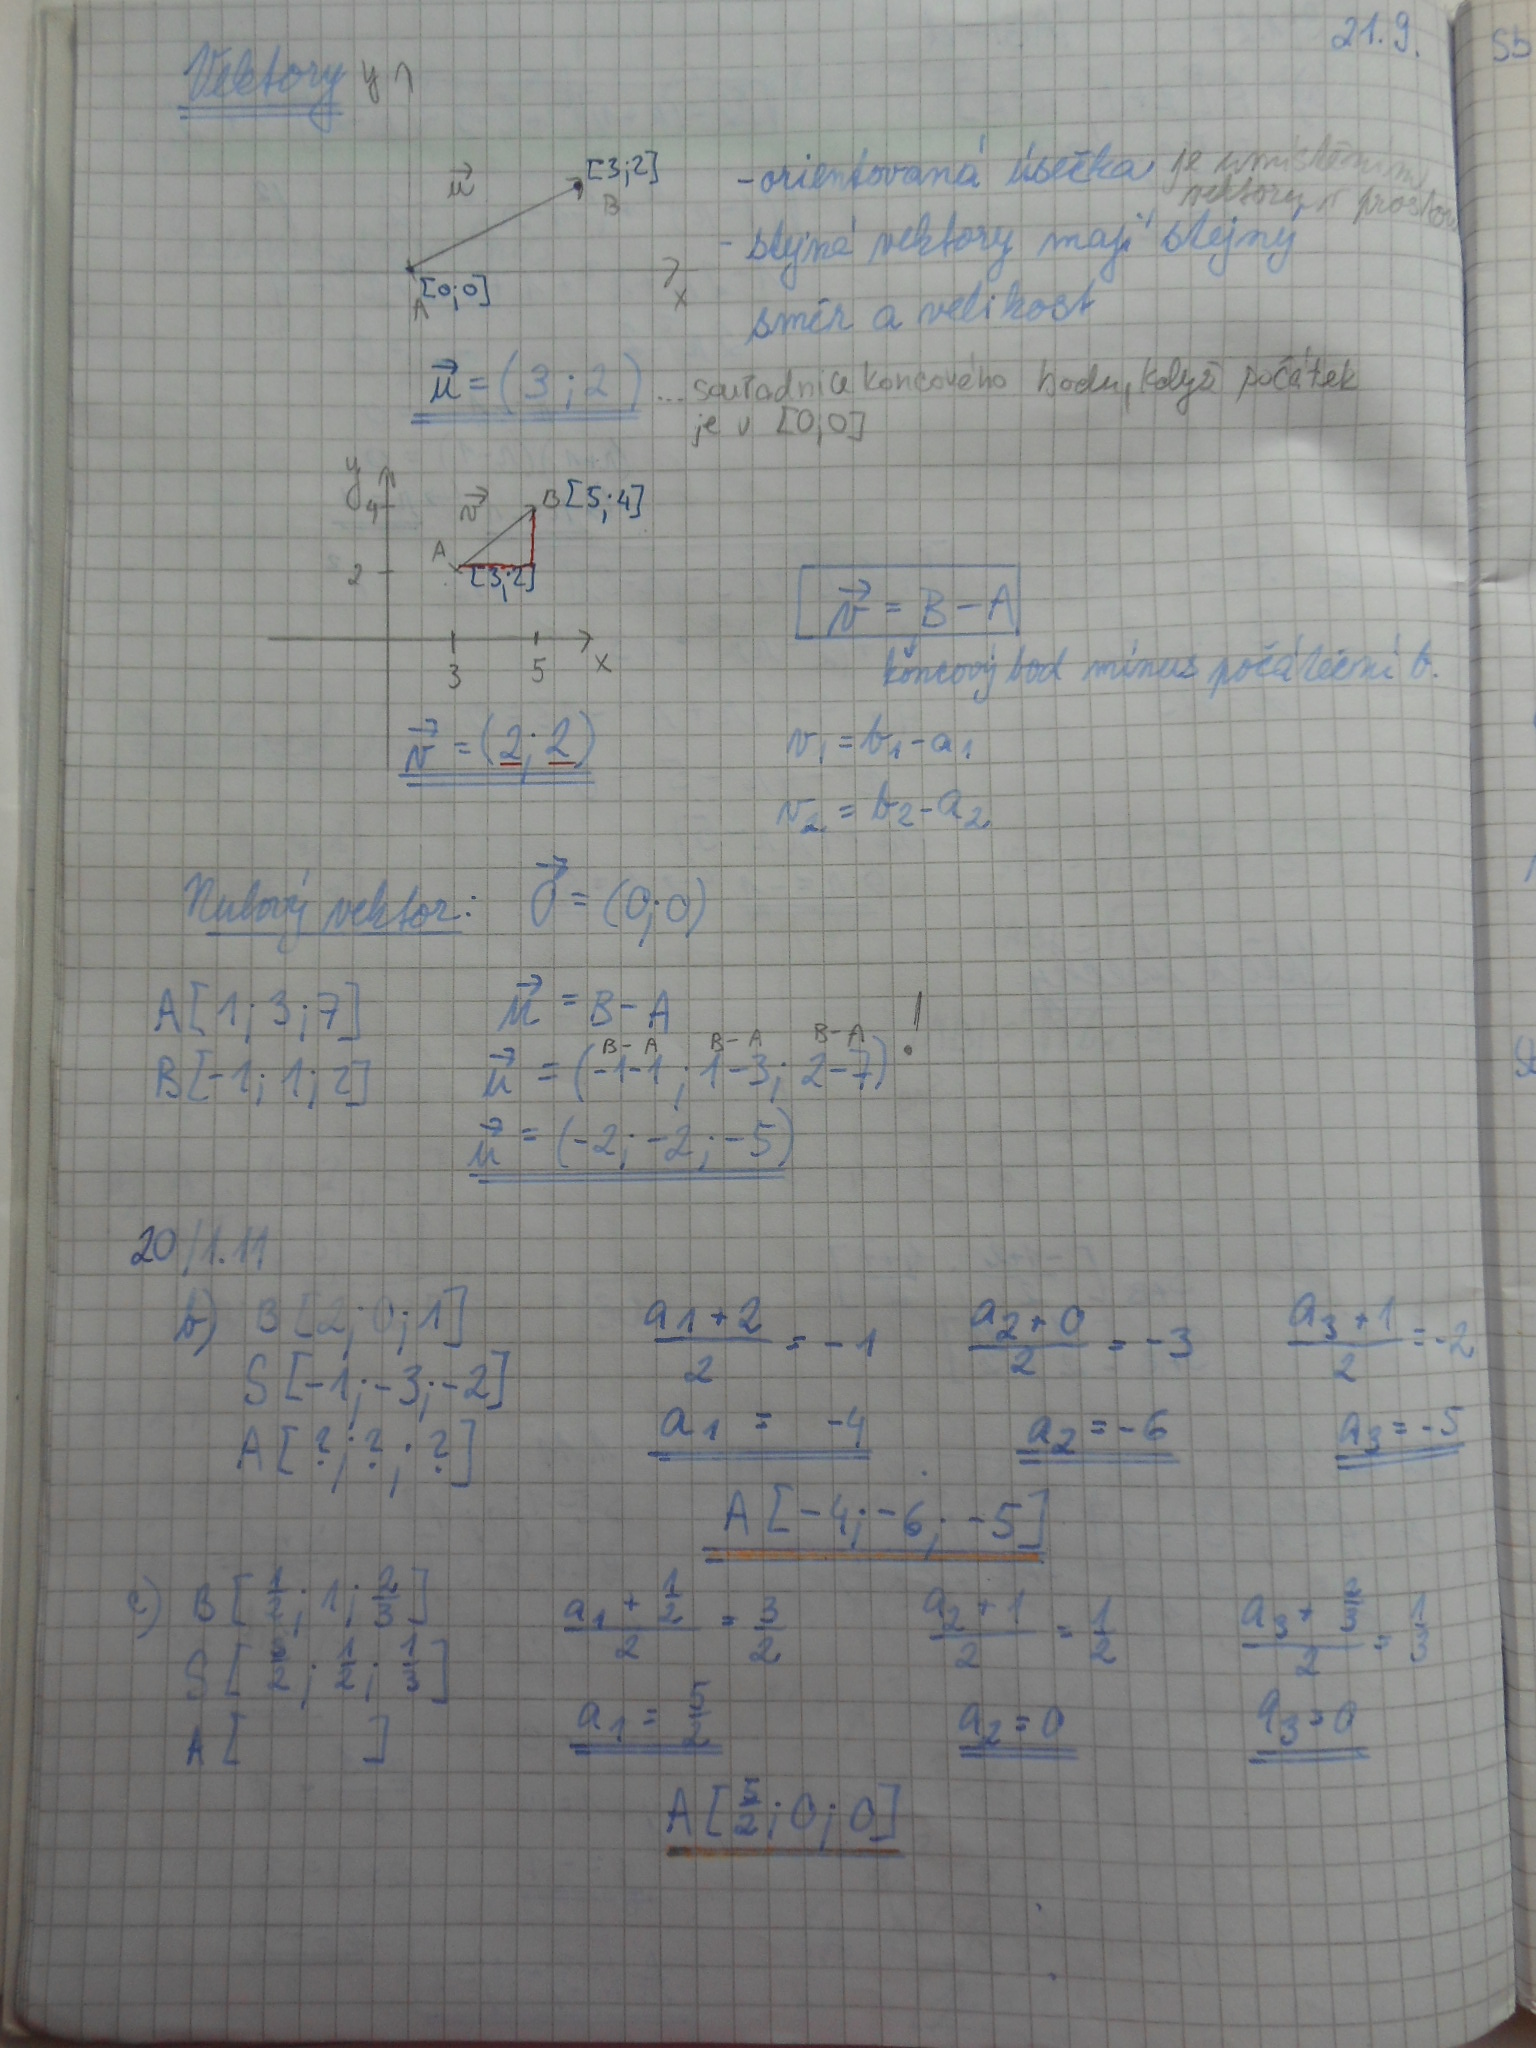 21.9.
Vektory
y
u⃗
[3;2]
B
A
[0;0]
x
- orientovaná úsečka je umístěním
vektoru v prostoru
- stejné vektory mají stejný
směr a velikost
u⃗ = (3;2) ... souřadnice koncového bodu, když počátek
je v [0;0]
y
4
v⃗
B[5;4]
A
[3;2]
2
3
5
x
v⃗ = B - A
koncový bod mínus počáteční b.
v⃗ = (2;2)
v₁ = b₁ - a₁
v₂ = b₂ - a₂
Nulový vektor: o⃗ = (0;0)
A[1;3;7]
u⃗ = B - A
B-A B-A B-A
B[-1;1;2]
u⃗ = (-1-1; 1-3; 2-7) !
u⃗ = (-2;-2;-5)
20/1.11
b) B[2;0;1]
(a₁+2)/2 = -1
(a₂+0)/2 = -3
(a₃+1)/2 = -2
S[-1;-3;-2]
A[?;?;?]
a₁ = -4
a₂ = -6
a₃ = -5
A[-4;-6;-5]
c) B[1/2;1;2/3]
(a₁+1/2)/2 = 3/2
(a₂+1)/2 = 1/2
(a₃+2/3)/2 = 1/3
A[ ]
a₁ = 5/2
a₂ = 0
a₃ = 0
A[5/2;0;0]